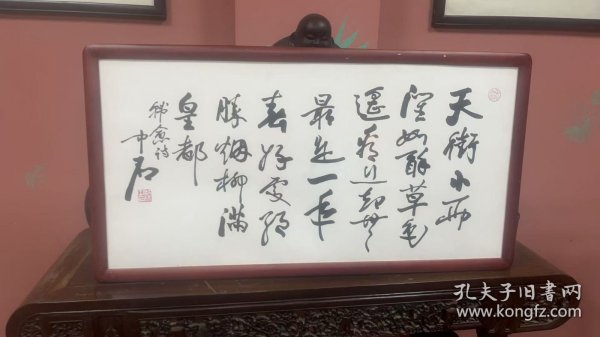 天街小雨
润如酥草色
遥看近却無
最是一年
春好處絕
勝烟柳滿
皇都
韩愈诗
中石
孔夫子旧书网
www.kongfz.com